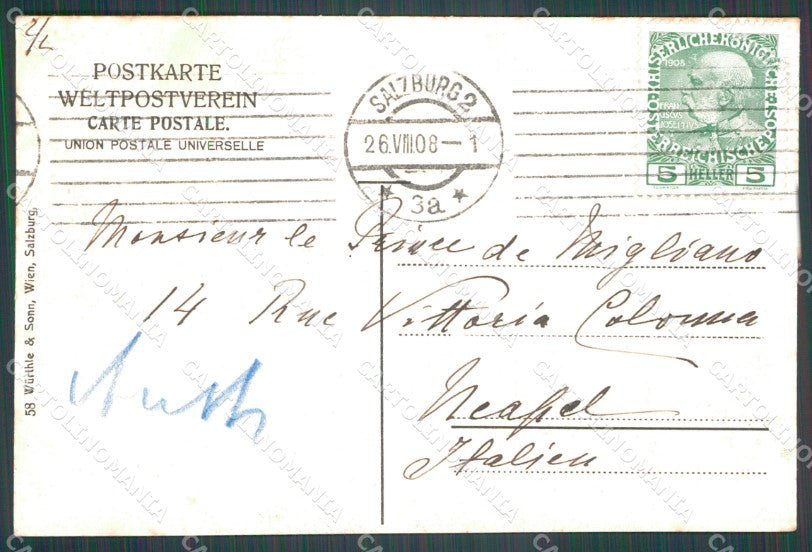 2/2
POSTKARTE
WELTPOSTVEREIN
CARTE POSTALE.
UNION POSTALE UNIVERSELLE
SALZBURG 2
26.VIII.08–1
* 3a *
1908
KAISERLICHE KÖNIGLICHE
FRANCISCVS JOSEPH I
ÖSTERREICHISCHE POST
5 HELLER 5
Monsieur le Prince de Migliano
14 Rue Vittoria Colonna
Neapel
Italien
58 Würthle & Sonn, Wien, Salzburg,
CARTOLINOMANIA